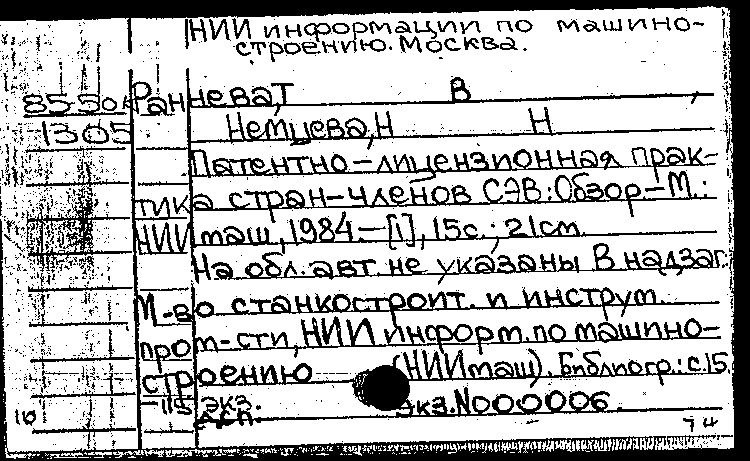 НИИ информации по машино-
строению. Москва.
85-50
Раннева, Т В ,
1305
Немцева, Н Н
Патентно-лицензионная прак-
тика стран-членов СЭВ: Обзор.-М.:
НИИмаш, 1984.-[1], 15с.; 21см.
На обл. авт. не указаны. В надзаг.
М-во станкостроит. и инструм.
пром-сти, НИИ информ. по машино-
строению (НИИмаш). Библиогр.: с.15.
-115 экз.
Экз. N000006.